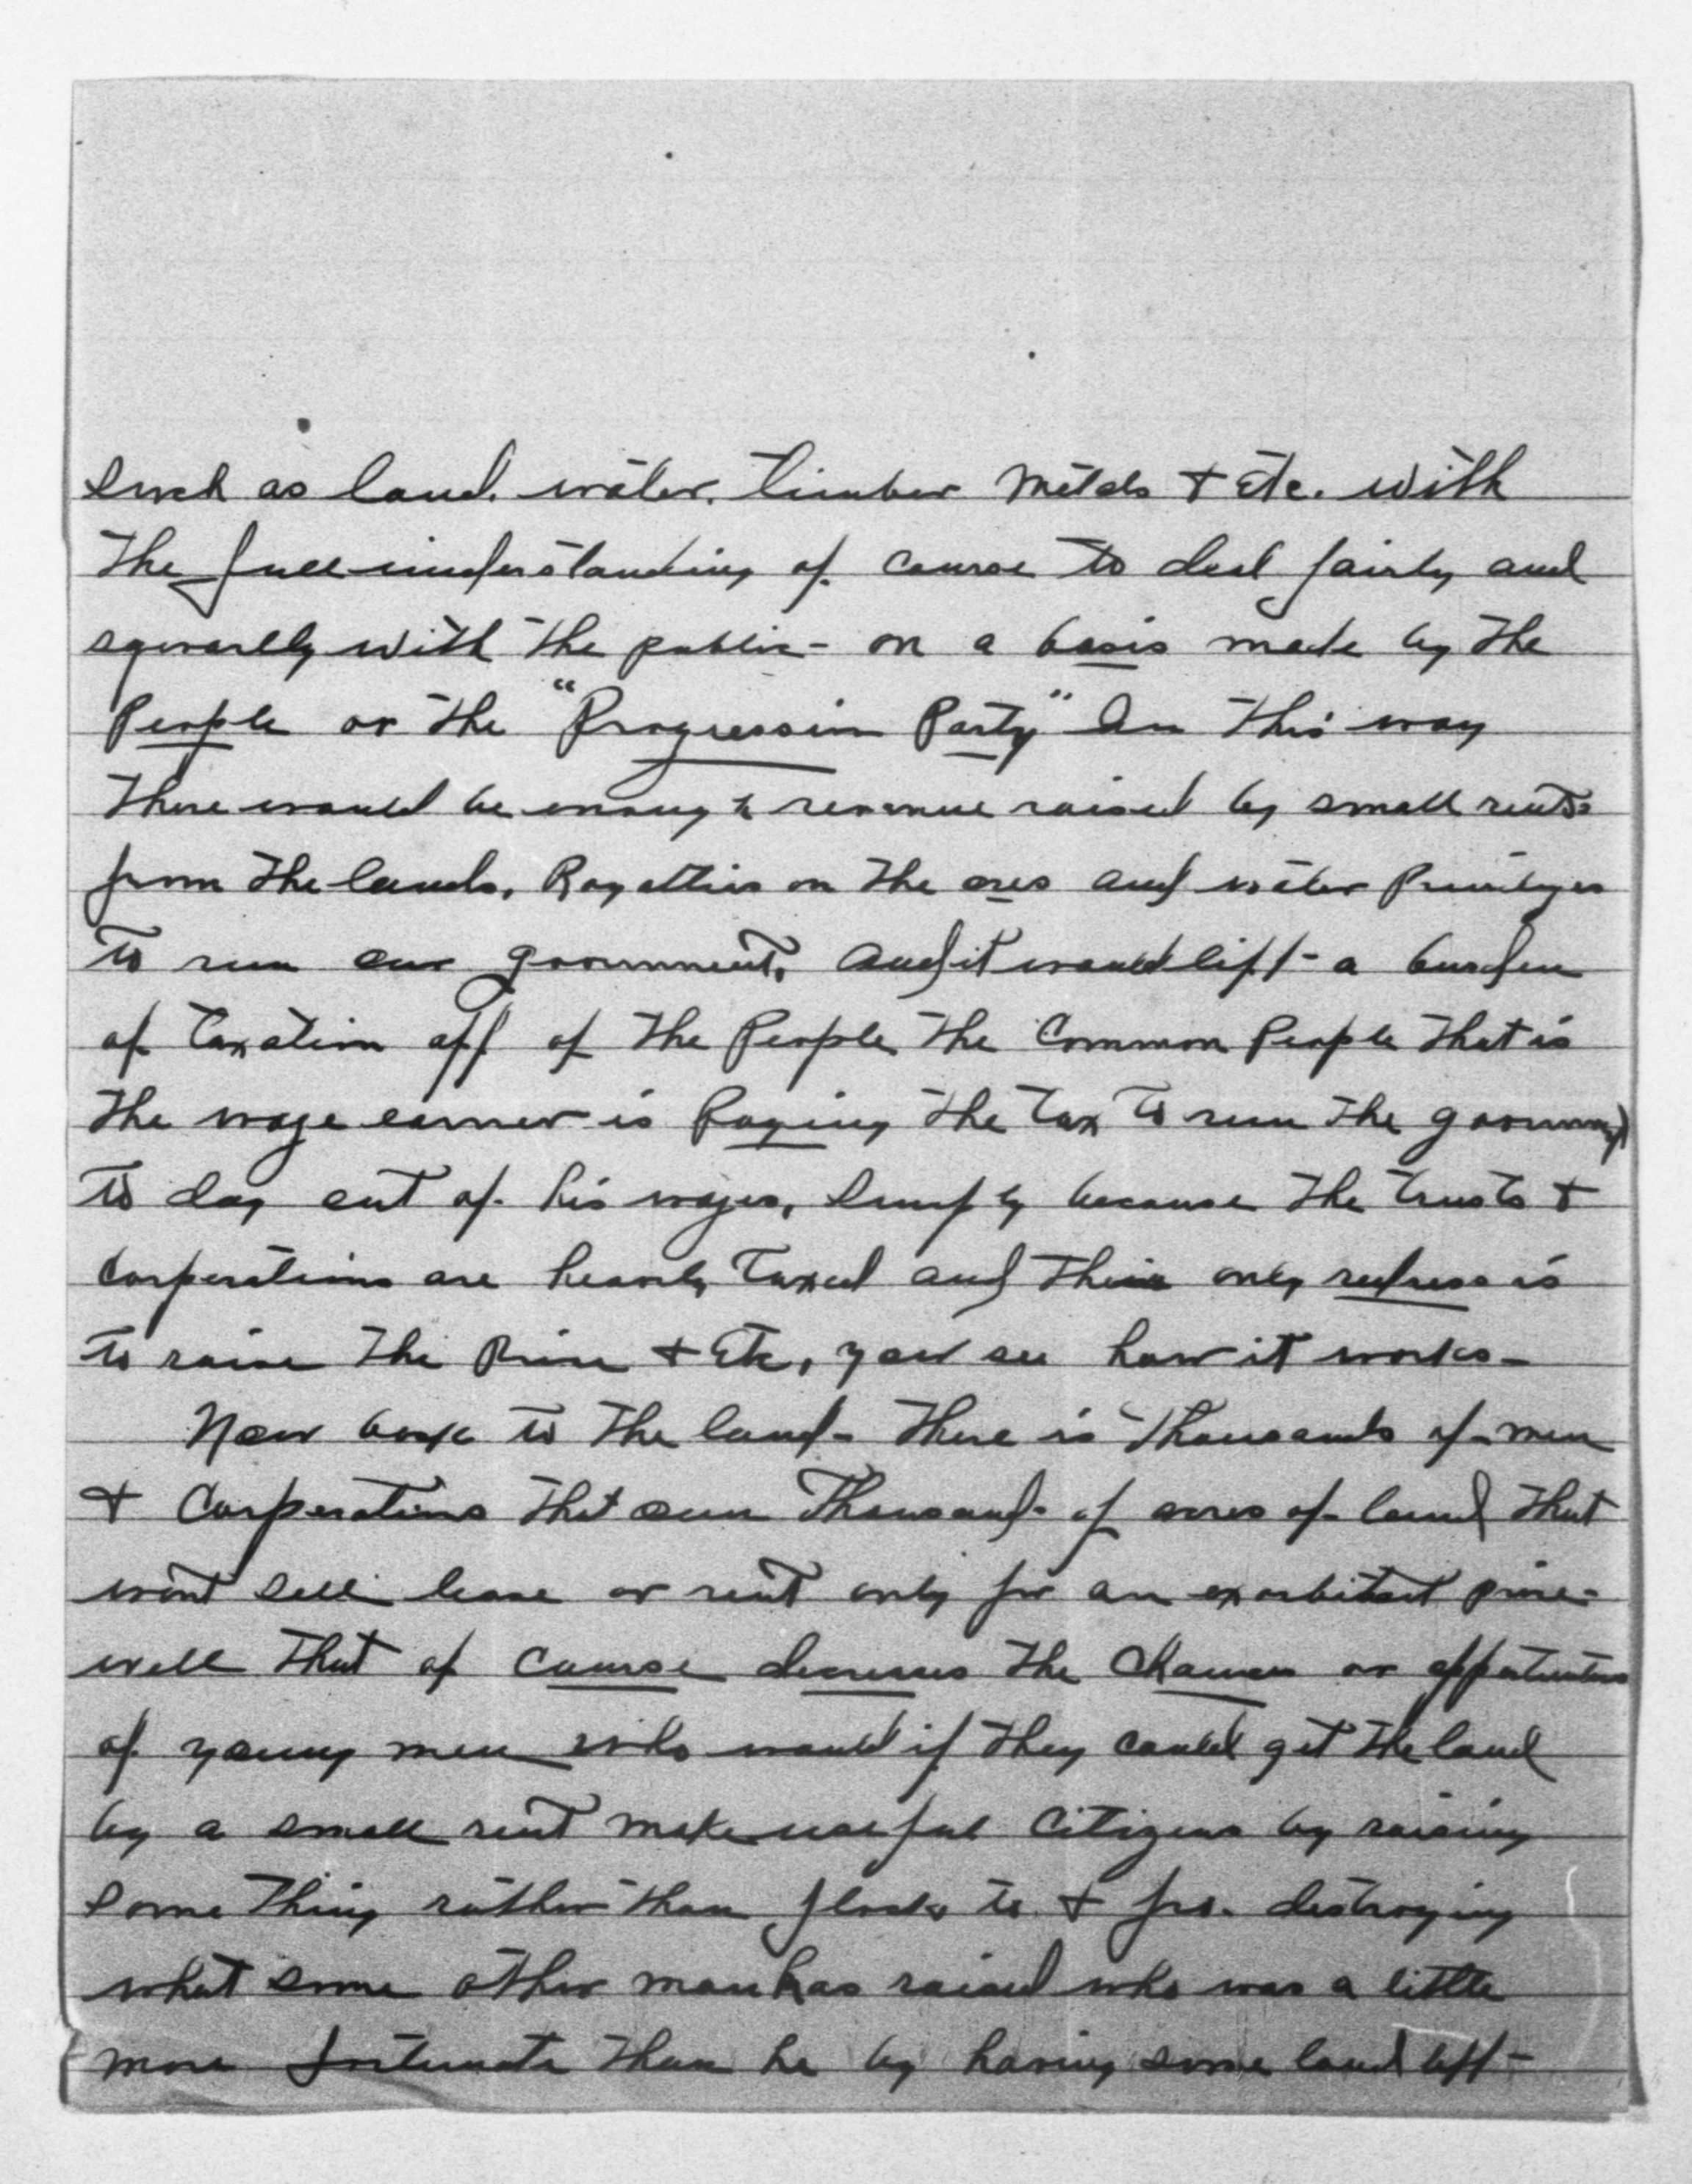 such as land. water. timber metals + Etc. with
the full understanding of course to deal fairly and
squarelly with the public - on a basis made by the
People or the "Progressive Party" In this way
there would be enough revenue raised by small rents
from the lands, Royalties on the ores and water Privileges
to run our government, and it would lift - a burden
of taxation off of the People, the Common People that is
the wage earner is Paying the tax to run the government
to day out of his wages, simply because the trusts +
Corperations are heavily taxed and their only redress is
to raise the Price + Etc, you see how it works -
Now back to the land - there is thousands of men
+ Corperations that own thousands of acres of land that
wont sell lease or rent only for an exorbitant price -
well that of course decreases the chances or oppertunities
of young men who would if they could get the land
by a small rent make useful citizens by raising
some thing rather than flock to + fro. destroying
what some other man has raised who was a little
more fortunate than he by having some land left -